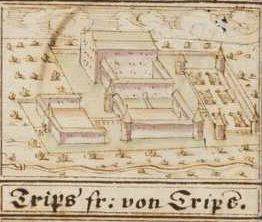 Trips fr: von Trips.